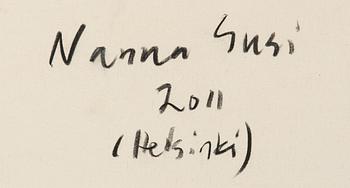 Nanna Susi
2011
(Helsinki)